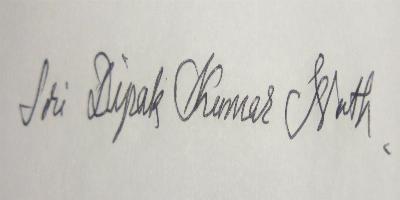 Sri Dipak Kumar Nath